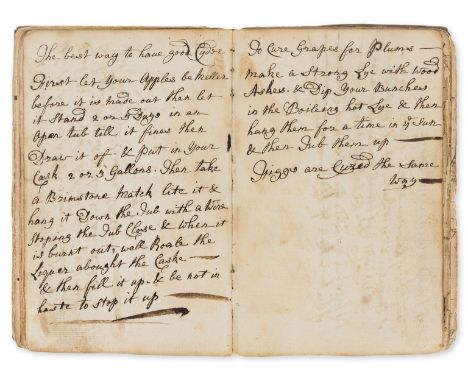 The best way to have good Cyder
First let Your Apples be Mellow
before it is made out then let
it Stand 2 or 3 Days in an
Open tub till it fines then
Draw it of & put in Your
Cask 2 or 3 Gallons. Then take
a Brimstone Match lite it &
hang it Down the Tub with a Wire
stoping the Tub Close & When it
is burnt out, well Roale the
Liquer abought the Caske
& then fill it up & be not in
haste to stop it up
To Cure Grapes for Plums
make a Strong Lye with Wood
Ashes. & Dip Your Bunches
in the Boileing hot Lye & then
hang them for a time in ye Sun
& then Tub them up
Figgs are Cured the Same
Way